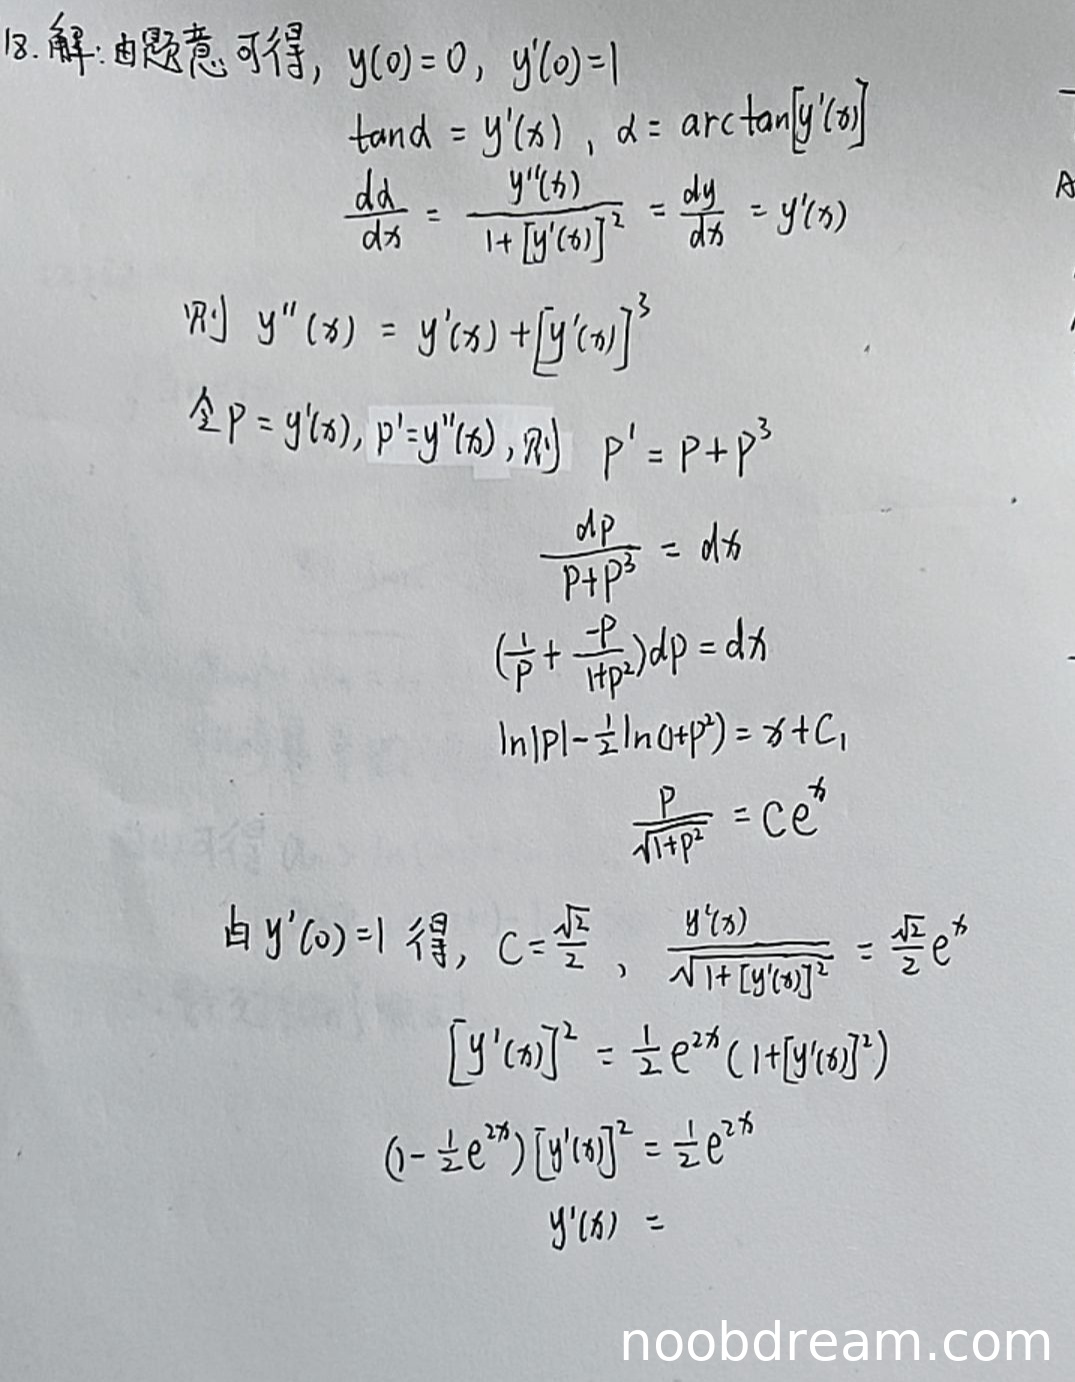 18. 解: 由题意可得, y(0)=0, y'(0)=1
tanα = y'(x), α = arctan[y'(x)]
dα/dx = y''(x)/(1+[y'(x)]²) = dy/dx = y'(x)
则 y''(x) = y'(x)+[y'(x)]³
令p = y'(x), p'=y''(x), 则 p' = p+p³
dp/(p+p³) = dx
(1/p + -p/(1+p²))dp = dx
ln|p| - ½ln(1+p²) = x+C₁
p/√(1+p²) = Ce^x
由 y'(0)=1 得, C = √2/2, y'(x)/√(1+[y'(x)]²) = √2/2 e^x
[y'(x)]² = ½e^(2x)(1+[y'(x)]²)
(1-½e^(2x))[y'(x)]² = ½e^(2x)
y'(x) =
noobdream.com